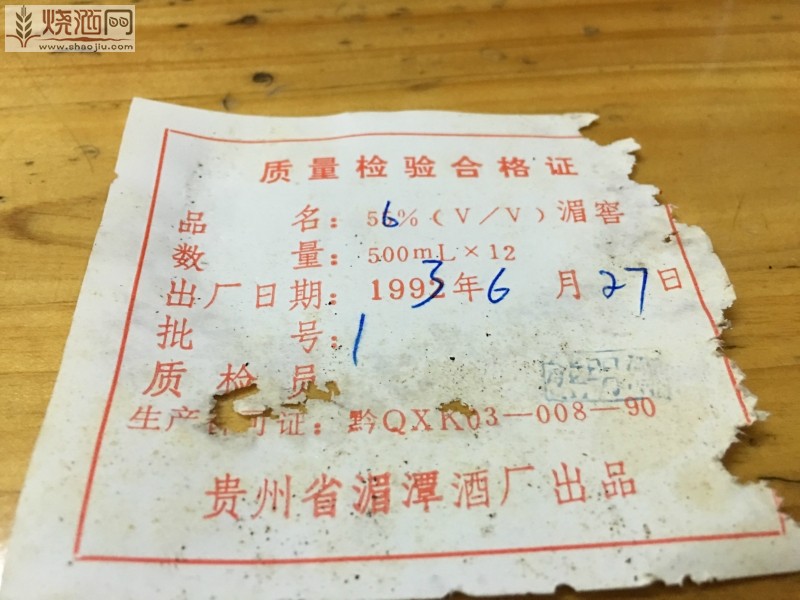 烧酒网
www.shaojiu.com
质量检验合格证
品名：56%（V/V）湄窖
数量：500mL×12
出厂日期：1993年6月27日
批号：1
质检员
生产许可证：黔QXK03—008—90
贵州省湄潭酒厂出品